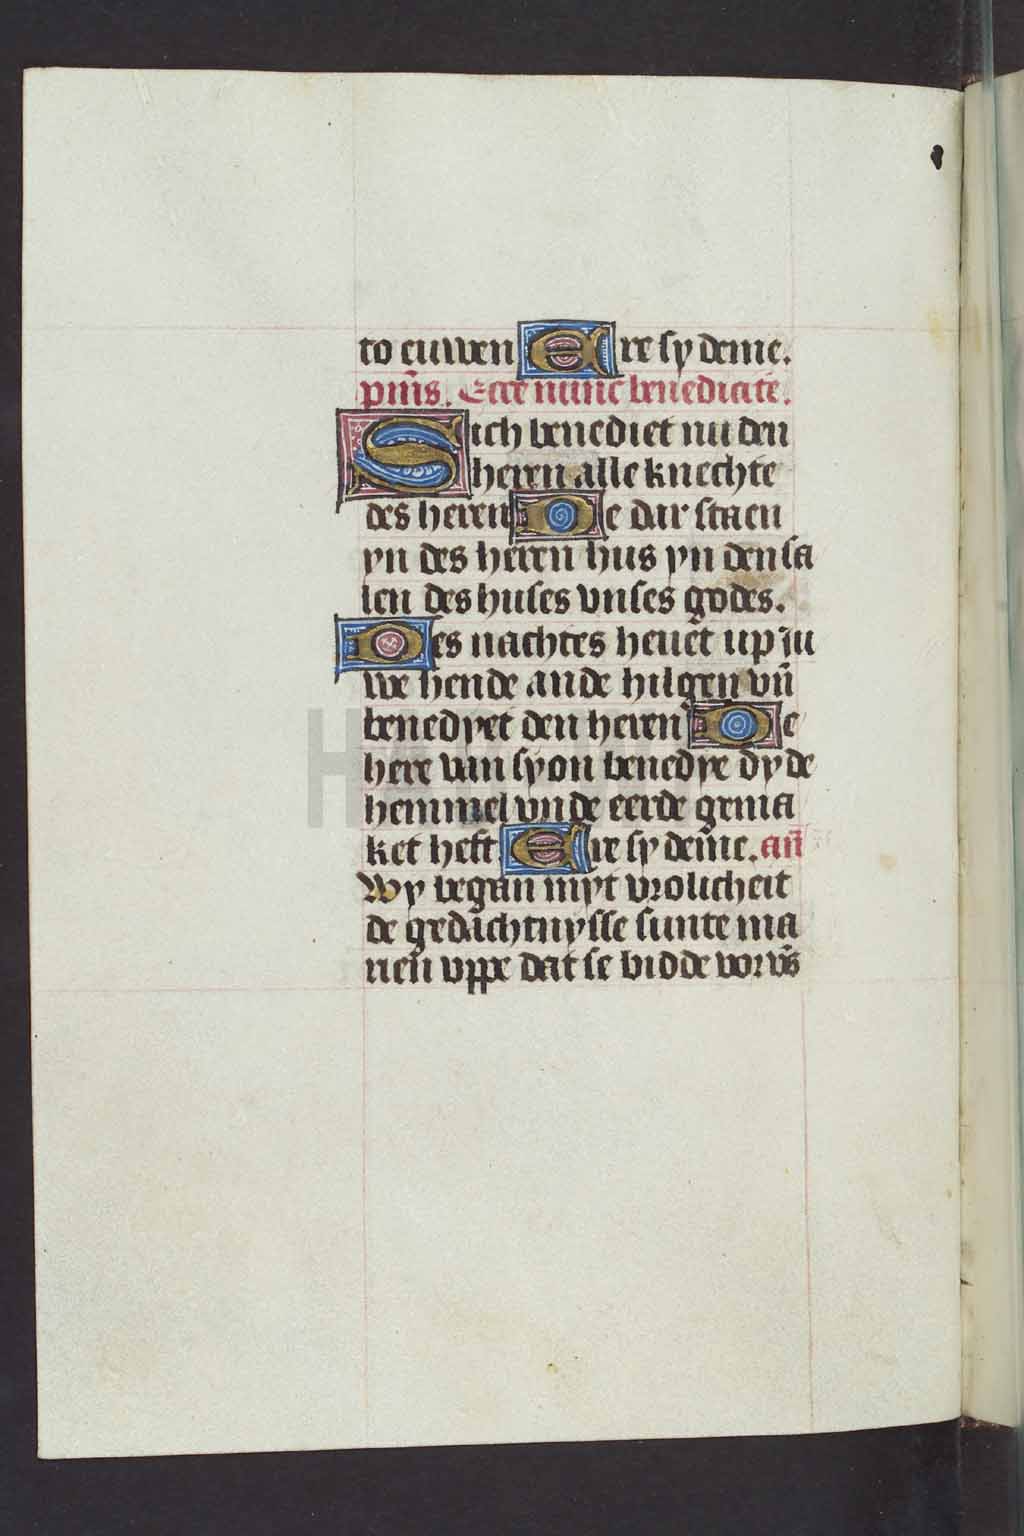 to euwen Ere sy deme.
pm̄s. Ecce nunc benedicite.
Sich benediet nu den
heren alle knechte
des heren De dar staen
yn des heren hus yn den sa
len des huses vnses godes.
Des nachtes heuet up ju
we hende an de hilgen vn̄
benedyet den heren De
here van syon benedye dy de
hemmel vnde eerde gema
ket heft Ere sy deme. an̄
Wy began myt vrolicheit
de gedāchtnysse sunte ma
rien vppe dat se bidde vor vs̄